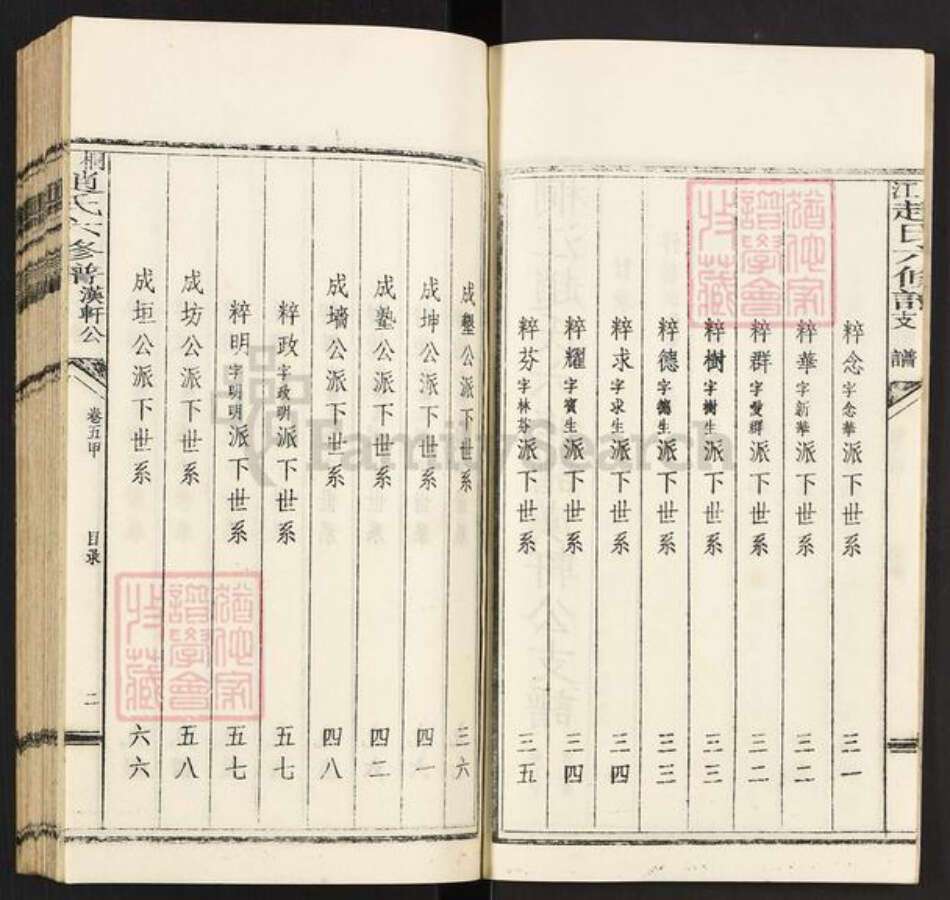 江趙氏六修譜支譜
粹念字念華派下世系 三一
粹華字新華派下世系 三二
粹群字愛群派下世系 三二
粹樹字樹生派下世系 三三
粹德字德生派下世系 三三
粹求字求生派下世系 三四
粹耀字賓生派下世系 三四
粹芬字林芬派下世系 三五
成墾公派下世系 三六
成坤公派下世系 四一
成塾公派下世系 四二
成墻公派下世系 四八
粹政字政明派下世系 五七
粹明字明明派下世系 五七
成坊公派下世系 五八
成垣公派下世系 六六
桐趙氏六修譜漢軒公 卷五甲 目录 二
猶他家譜學會收藏
猶他家譜學會收藏
FamilySearch